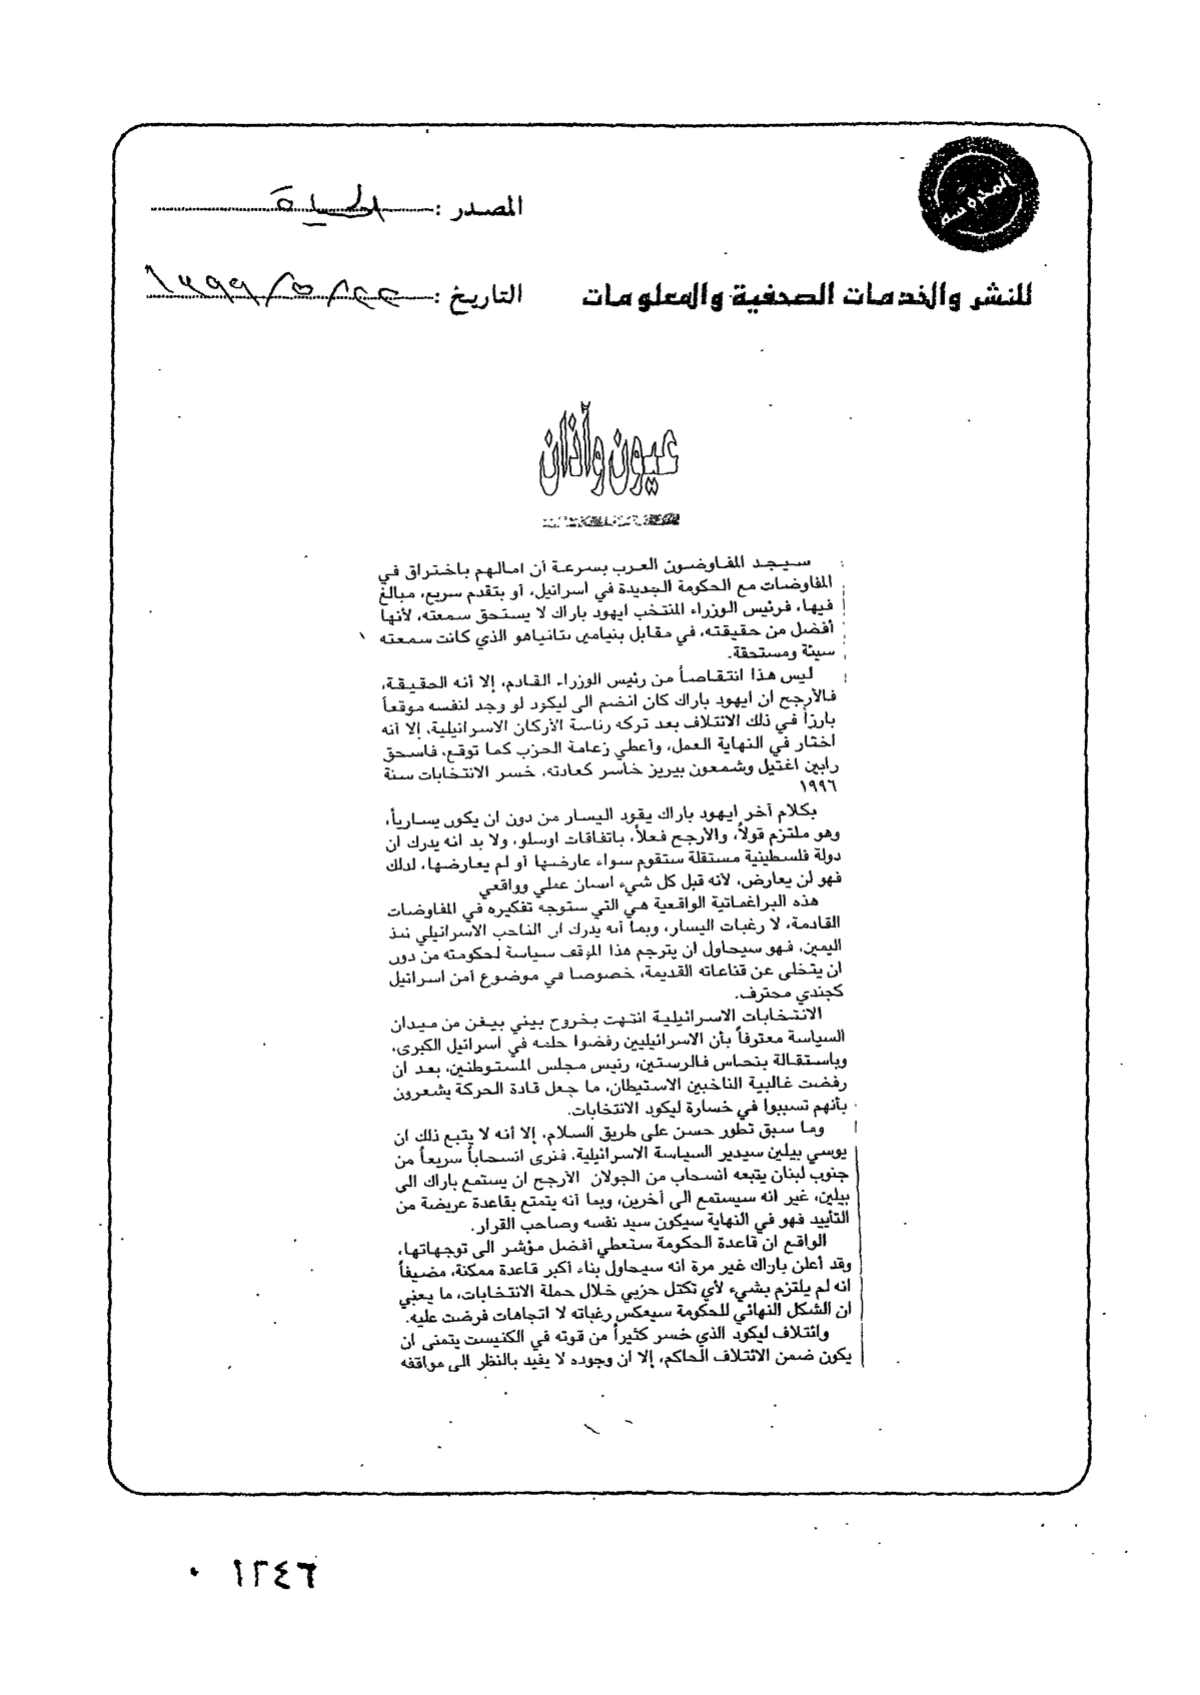 المحروسة
المصدر: الحياة
للنشر والخدمات الصحفية والمعلومات
التاريخ: ٢٢/٥/١٩٩٩
عيون وآذان
سيجد المفاوضون العرب بسرعة أن امالهم باختراق في
المفاوضات مع الحكومة الجديدة في اسرائيل، أو بتقدم سريع، مبالغ
فيها، فرئيس الوزراء المنتخب ايهود باراك لا يستحق سمعته، لأنها
أفضل من حقيقته، في مقابل بنيامين نتانياهو الذي كانت سمعته
سيئة ومستحقة.
ليس هذا انتقاصاً من رئيس الوزراء القادم، إلا أنه الحقيقة،
فالأرجح ان ايهود باراك كان انضم الى ليكود لو وجد لنفسه موقعاً
بارزاً في ذلك الائتلاف بعد تركه رئاسة الأركان الاسرائيلية، إلا أنه
اختار في النهاية العمل، وأعطي زعامة الحزب كما توقع، فاسحق
رابين اغتيل وشمعون بيريز خاسر كعادته، خسر الانتخابات سنة
١٩٩٦
بكلام آخر ايهود باراك يقود اليسار من دون ان يكون يسارياً،
وهو ملتزم قولاً، والأرجح فعلاً، باتفاقات اوسلو، ولا بد انه يدرك ان
دولة فلسطينية مستقلة ستقوم سواء عارضها أو لم يعارضها، لذلك
فهو لن يعارض، لانه قبل كل شيء انسان عملي وواقعي
هذه البراغماتية الواقعية هي التي ستوجه تفكيره في المفاوضات
القادمة، لا رغبات اليسار، وبما أنه يدرك ان الناخب الاسرائيلي نبذ
اليمين، فهو سيحاول ان يترجم هذا الموقف سياسة لحكومته من دون
ان يتخلى عن قناعاته القديمة، خصوصا في موضوع أمن اسرائيل
كجندي محترف.
الانتخابات الاسرائيلية انتهت بخروج بيني بيغن من ميدان
السياسة معترفاً بأن الاسرائيليين رفضوا حلمه في اسرائيل الكبرى،
وباستقالة بنحاس فالرستين، رئيس مجلس المستوطنين، بعد ان
رفضت غالبية الناخبين الاستيطان، ما جعل قادة الحركة يشعرون
بأنهم تسببوا في خسارة ليكود الانتخابات.
وما سبق تطور حسن على طريق السلام، إلا أنه لا يتبع ذلك ان
يوسي بيلين سيدير السياسة الاسرائيلية، فنرى انسحاباً سريعاً من
جنوب لبنان يتبعه انسحاب من الجولان الأرجح ان يستمع باراك الى
بيلين، غير انه سيستمع الى آخرين، وبما أنه يتمتع بقاعدة عريضة من
التأييد فهو في النهاية سيكون سيد نفسه وصاحب القرار.
الواقع ان قاعدة الحكومة ستعطي أفضل مؤشر الى توجهاتها،
وقد أعلن باراك غير مرة انه سيحاول بناء أكبر قاعدة ممكنة، مضيفاً
انه لم يلتزم بشيء لأي تكتل حزبي خلال حملة الانتخابات، ما يعني
ان الشكل النهائي للحكومة سيعكس رغباته لا اتجاهات فرضت عليه.
وائتلاف ليكود الذي خسر كثيراً من قوته في الكنيست يتمنى ان
يكون ضمن الائتلاف الحاكم، إلا ان وجوده لا يفيد بالنظر الى مواقفه
١٢٤٦